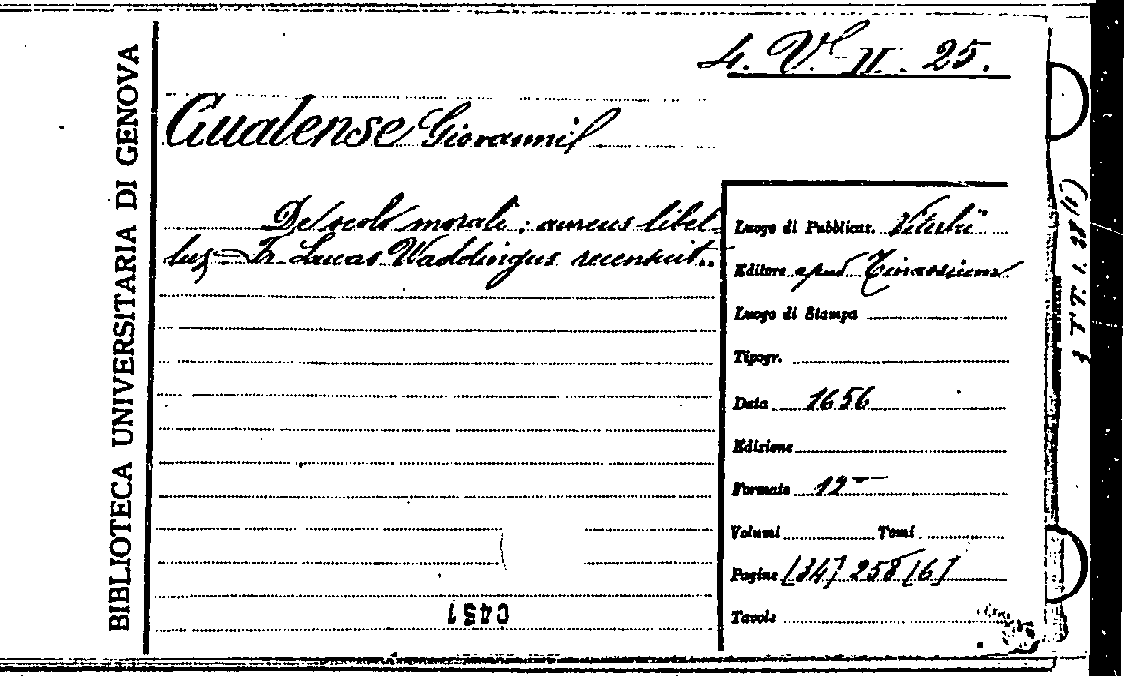 4. V. II. 25.
BIBLIOTECA UNIVERSITARIA DI GENOVA
Gualense Giovanni
De oculo morali: aureus libel-
lus Fr. Lucas Waddingus recensuit..
Luogo di Pubblicaz. Viterbii
Editore apud
Luogo di Stampa
Tipogr.
Data 1656
Edizione
Formato 12
Volumi Tomi
Pagine [34] 258 [6]
Tavole